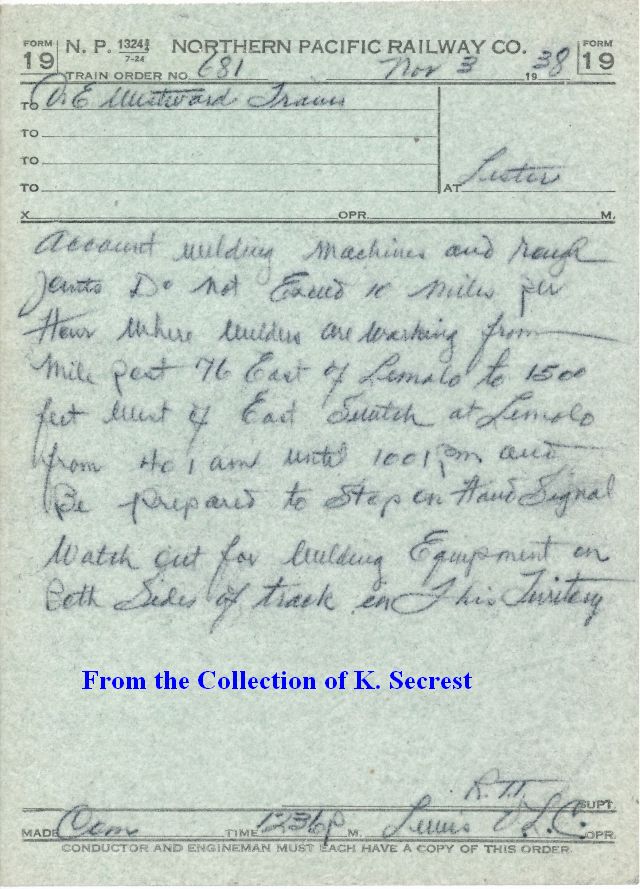 FORM 19 N. P. 1324½ 7-24 NORTHERN PACIFIC RAILWAY CO. FORM 19
TRAIN ORDER NO. 681 Nov 3 1938
TO C&E Westward Trains
TO
TO
TO AT Lester
X OPR. M.
Account welding machines and rough
Joints Do Not Exceed 10 miles per
Hour Where Welders are Working from
Mile post 76 East of Lemolo to 1500
feet West of East Switch at Lemolo
from 401 am until 1001 pm and
Be prepared to Stop on Hand Signal
Watch out for Welding Equipment on
Both Sides of track in This Territory
From the Collection of K. Secrest
SUPT.
MADE Com TIME 1236 P M. Lewis OPR.
CONDUCTOR AND ENGINEMAN MUST EACH HAVE A COPY OF THIS ORDER.